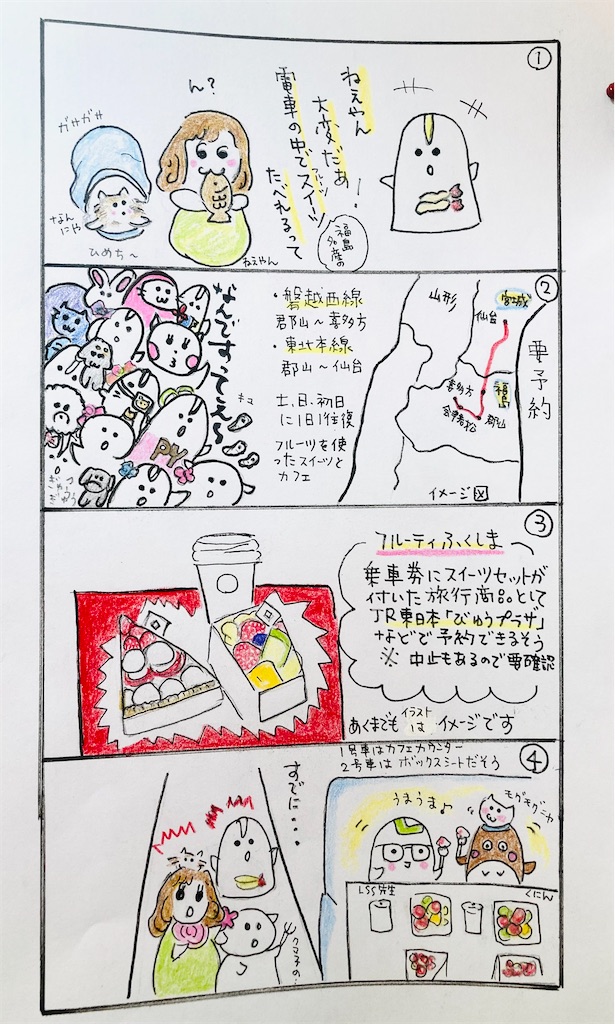 ①
ねぇやん
大変だぁー!
電車の中でフルーツスイーツ
たべれるって
福島名産の
ん?
ガサガサ
なんにゃ
ひめち~
ねぇやん
②
なんですってぇ~
キコ
PY
ぎゅうぎゅう
・磐越西線
郡山~喜多方
・東北本線
郡山~仙台
土、日、初日
に1日1往復
フルーツを使
ったスイーツと
カフェ
山形
宮城
仙台
福島
喜多方
会津若松
郡山
要予約
イメージ図
③
フルーティふくしま
乗車券にスイーツセットが
付いた旅行商品として
JR東日本「びゅうプラザ」
などで予約できるそう
※ 中止もあるので要確認
あくまでもイラストはイメージです
④
1号車はカフェカウンター
2号車はボックスシートだそう
すでに・・・
うまうま♪
モグモグニャ
LSS先生
くにん
クマ子の…